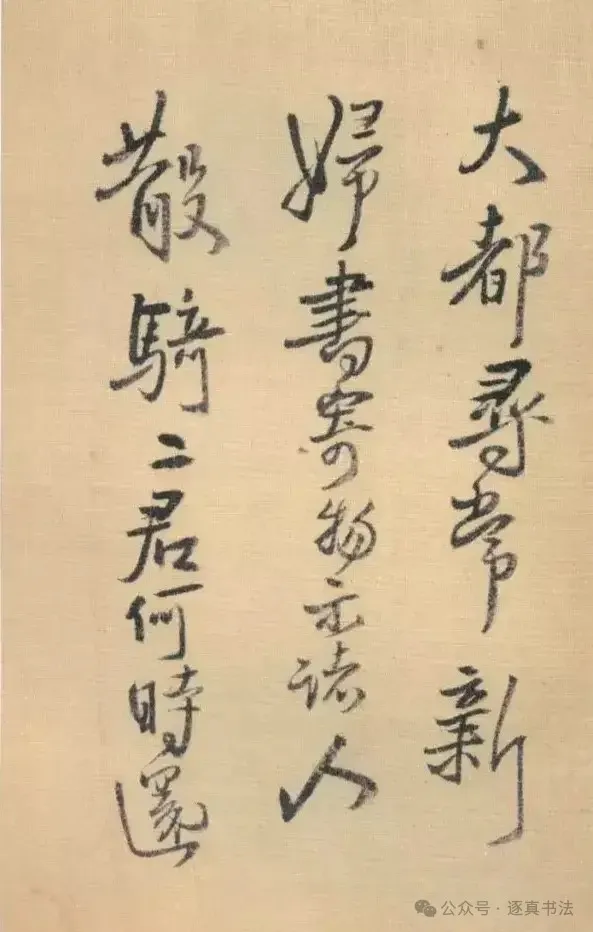 大都尋常新
婦書寄物示諸人
散騎二君何時還
公众号·逐真书法